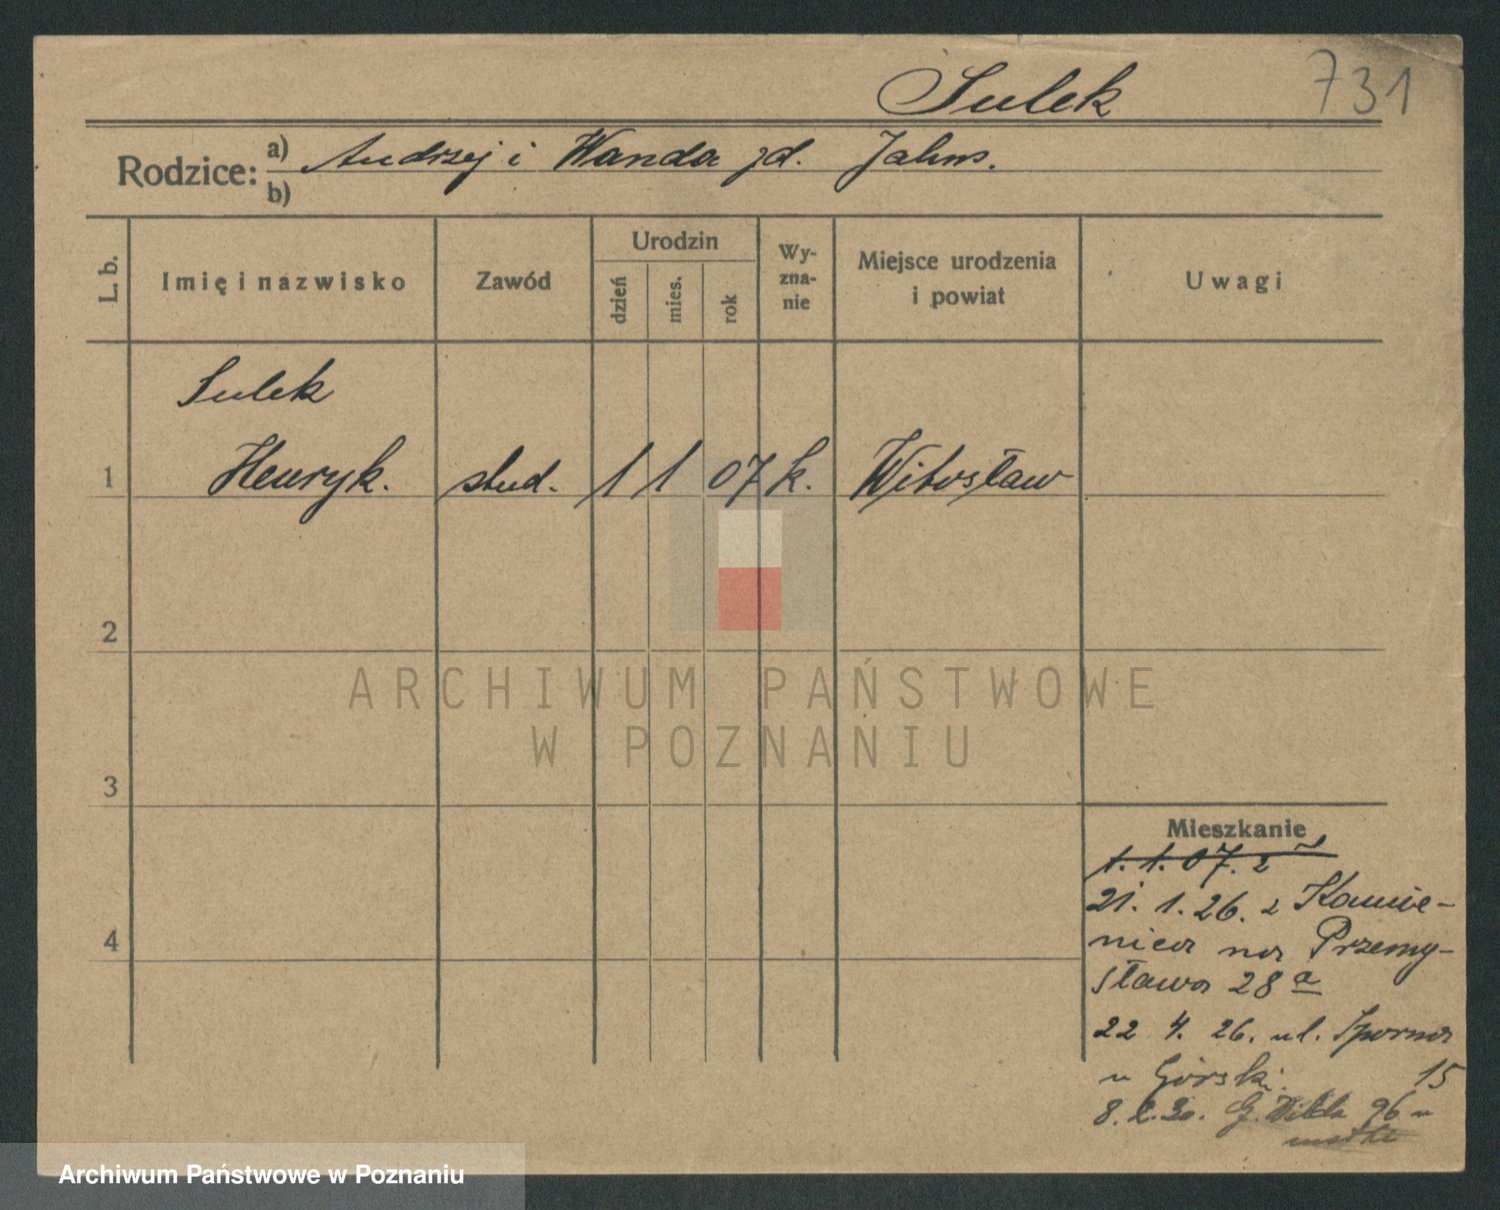 Sulek 731
Rodzice: a) Andrzej i Wanda zd. Jahns.
b)
L. b. Imię i nazwisko Zawód Urodzin dzień mies. rok Wy-zna-nie Miejsce urodzenia i powiat Uwagi
Sulek
1 Henryk. stud. 1 1 07 k. Witosław
2
ARCHIWUM PAŃSTWOWE
W POZNANIU
3
Mieszkanie
1. 1. 07. z
21. 1. 26. z Kamie-
4 nica na Przemy-
sława 28 a
22 4. 26. ul. Sporna
u Górski. 15
8. 2. 30. G. Wilda 96 u
matki
Archiwum Państwowe w Poznaniu